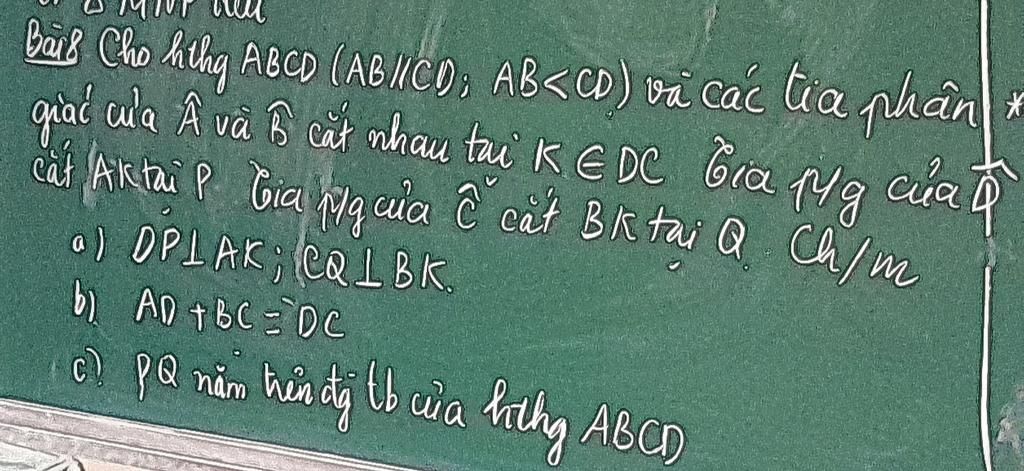 Δ MNP
Bài 8 Cho hthg ABCD (AB//CD; AB<CD) và các tia phân
giác của Â và B̂ cắt nhau tại K ∈ DC Tia p/g của D̂
cắt AK tại P Tia p/g của Ĉ cắt BK tại Q. Ch/m
a) DP⊥AK; CQ⊥BK.
b) AD + BC = DC
c) PQ nằm trên đg tb của hthg ABCD